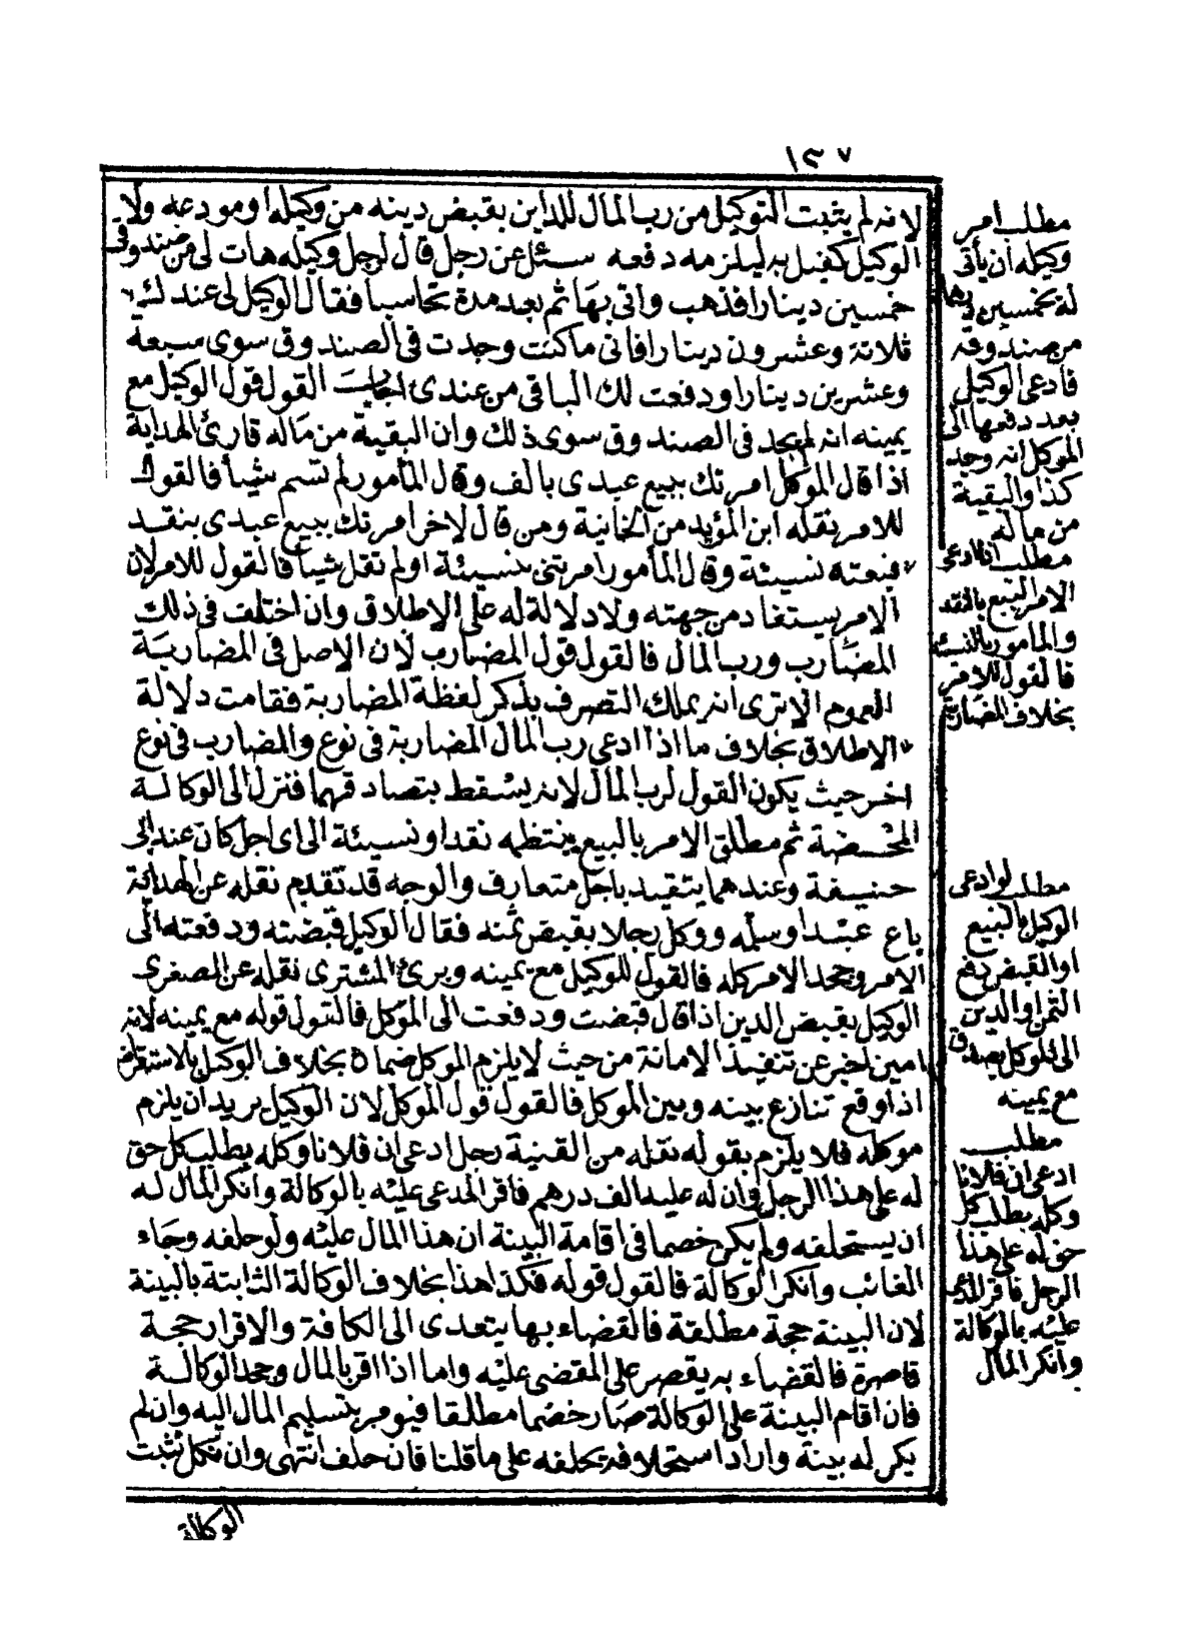 ١٣٧
لانه لم يثبت التوكيل من رب المال للداين بقبض دينه من وكيله او مودعه ولا
الوكيل كفيل به ليلزمه دفعه سئل عن رجل قال لرجل وكيله هات لى من صندوقى
خمسين دينارا فذهب واتى بها ثم بعد مدة تحاسبا فقال الوكيل لى عندك
ثلاثة وعشرون دينارا فانى ما كنت وجدت فى الصندوق سوى سبعة
وعشرين دينارا ودفعت لك الباقى من عندى اجاب القول قول الوكيل مع
يمينه انه لم يجد فى الصندوق سوى ذلك وان البقية من ماله قارئ الهداية
اذا قال الموكل امرتك ببيع عبدى بالف وقال المأمور لم تسم شيأ فالقول
للامر نقله ابن المؤيد من الخانية ومن قال لاخر امرتك ببيع عبدى بنقد
فبعته نسيئة وقال المأمور امرتنى بنسيئة او لم تقل شيأ فالقول للامر لان
الامر يستفاد من جهته ولا دلالة له على الاطلاق وان اختلف فى ذلك
المضارب ورب المال فالقول قول المضارب لان الاصل فى المضاربة
العموم الا ترى انه يملك التصرف بذكر لفظة المضاربة فقامت دلالة
الاطلاق بخلاف ما اذا ادعى رب المال المضاربة فى نوع والمضارب فى نوع
اخر حيث يكون القول لرب المال لانه يسقط بتصادقهما فنزل الى الوكالة
المحضة ثم مطلق الامر بالبيع ينتظمه نقدا ونسيئة الى اى اجل كان عند ابى
حنيفة وعندهما يتقيد باجل متعارف والوجه قد تقدم نقله عن الهداية
باع عبدا وسلمه ووكل رجلا بقبض ثمنه فقال الوكيل قبضته ودفعته الى
الامر وجحد الامر كله فالقول للوكيل مع يمينه وبرئ المشترى نقله عن الصغرى
الوكيل بقبض الدين اذا قال قبضت ودفعت الى الموكل فالقول قوله مع يمينه لانه
امين اخبر عن تنفيذ الامانة من حيث لا يلزم الموكل ضمانا بخلاف الوكيل بالاستقراض
اذا وقع تنازع بينه وبين الموكل فالقول قول الموكل لان الوكيل يريد ان يلزم
موكله فلا يلزم بقوله نقله من القنية رجل ادعى ان فلانا وكله بطلب كل حق
له على هذا الرجل وان له عليه الف درهم فاقر المدعى عليه بالوكالة وانكر المال له
ان يستحلفه ولم يكن خصما فى اقامة البينة ان هذا المال عليه ولو حلفه وجاء
الغائب وانكر الوكالة فالقول قوله فكذا هذا بخلاف الوكالة الثابتة بالبينة
لان البينة حجة مطلقة فالقضاء بها يتعدى الى الكافة والاقرار حجة
قاصرة فالقضاء به يقصر على المقضى عليه واما اذا اقر بالمال وجحد الوكالة
فان اقام البينة على الوكالة صار خصما مطلقا فيومر بتسليم المال اليه وان لم
يكن له بينة واراد استحلافه يحلفه على ما قلنا فان حلف انتهى وان نكل ثبت
الوكالة
مطلب امر
وكيله ان يأتى
له بخمسين
من صندوقه
فادعى الوكيل
بعد دفعها الى
الموكل انه وجد
كذا والبقية
من ماله
مطلب اذا ادعى
الامر البيع بالنقد
والمامور بالنسئة
فالقول للامر
بخلاف المضاربة
مطلب لو ادعى
الوكيل بالبيع
او القبض دفع
الثمن او الدين
الى الموكل يصدق
مع يمينه
مطلب
ادعى ان فلانا
وكله بطلب كل
حق له على هذا
الرجل فاقر المدعى
عليه بالوكالة
وانكر المال